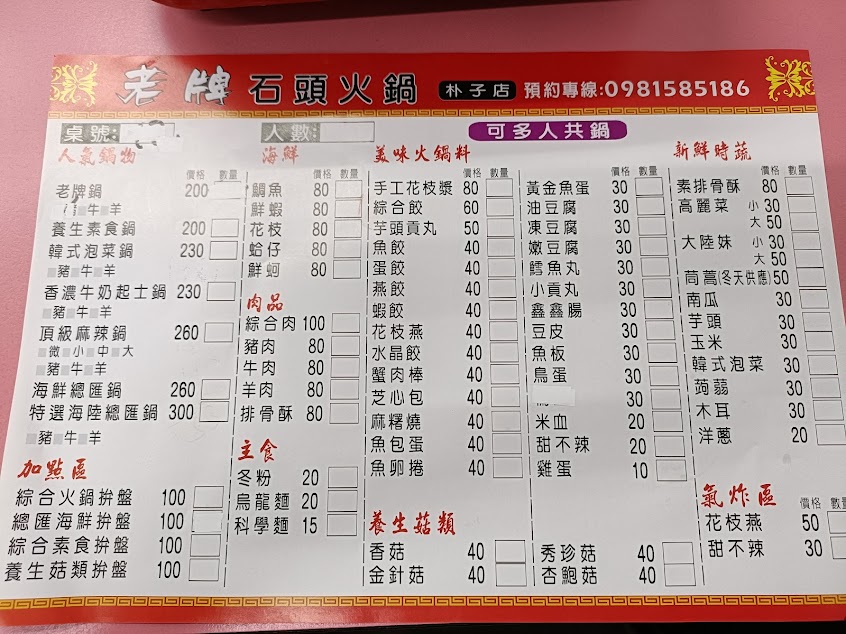 老牌 石頭火鍋 朴子店 預約專線:0981585186
桌號: 人數: 可多人共鍋
人氣鍋物
價格 數量
老牌鍋 200
豬 牛 羊
養生素食鍋 200
韓式泡菜鍋 230
豬 牛 羊
香濃牛奶起士鍋 230
豬 牛 羊
頂級麻辣鍋 260
微 小 中 大
豬 牛 羊
海鮮總匯鍋 260
特選海陸總匯鍋 300
豬 牛 羊
加點區
綜合火鍋拚盤 100
總匯海鮮拚盤 100
綜合素食拚盤 100
養生菇類拚盤 100
海鮮
價格 數量
鯛魚 80
鮮蝦 80
花枝 80
蛤仔 80
鮮蚵 80
肉品
綜合肉 100
豬肉 80
牛肉 80
羊肉 80
排骨酥 80
主食
冬粉 20
烏龍麵 20
科學麵 15
美味火鍋料
價格 數量
手工花枝漿 80
綜合餃 60
芋頭貢丸 50
魚餃 40
蛋餃 40
燕餃 40
蝦餃 40
花枝燕 40
水晶餃 40
蟹肉棒 40
芝心包 40
麻糬燒 40
魚包蛋 40
魚卵捲 40
價格 數量
黃金魚蛋 30
油豆腐 30
凍豆腐 30
嫩豆腐 30
鱈魚丸 30
小貢丸 30
鑫鑫腸 30
豆皮 30
魚板 30
鳥蛋 30
30
米血 20
甜不辣 20
雞蛋 10
養生菇類
香菇 40
金針菇 40
秀珍菇 40
杏鮑菇 40
新鮮時蔬
價格 數量
素排骨酥 80
高麗菜 小 30
大 50
大陸妹 小 30
大 50
茼蒿(冬天供應) 50
南瓜 30
芋頭 30
玉米 30
韓式泡菜 30
蒟蒻 30
木耳 30
洋蔥 20
氣炸區
價格 數量
花枝燕 50
甜不辣 30